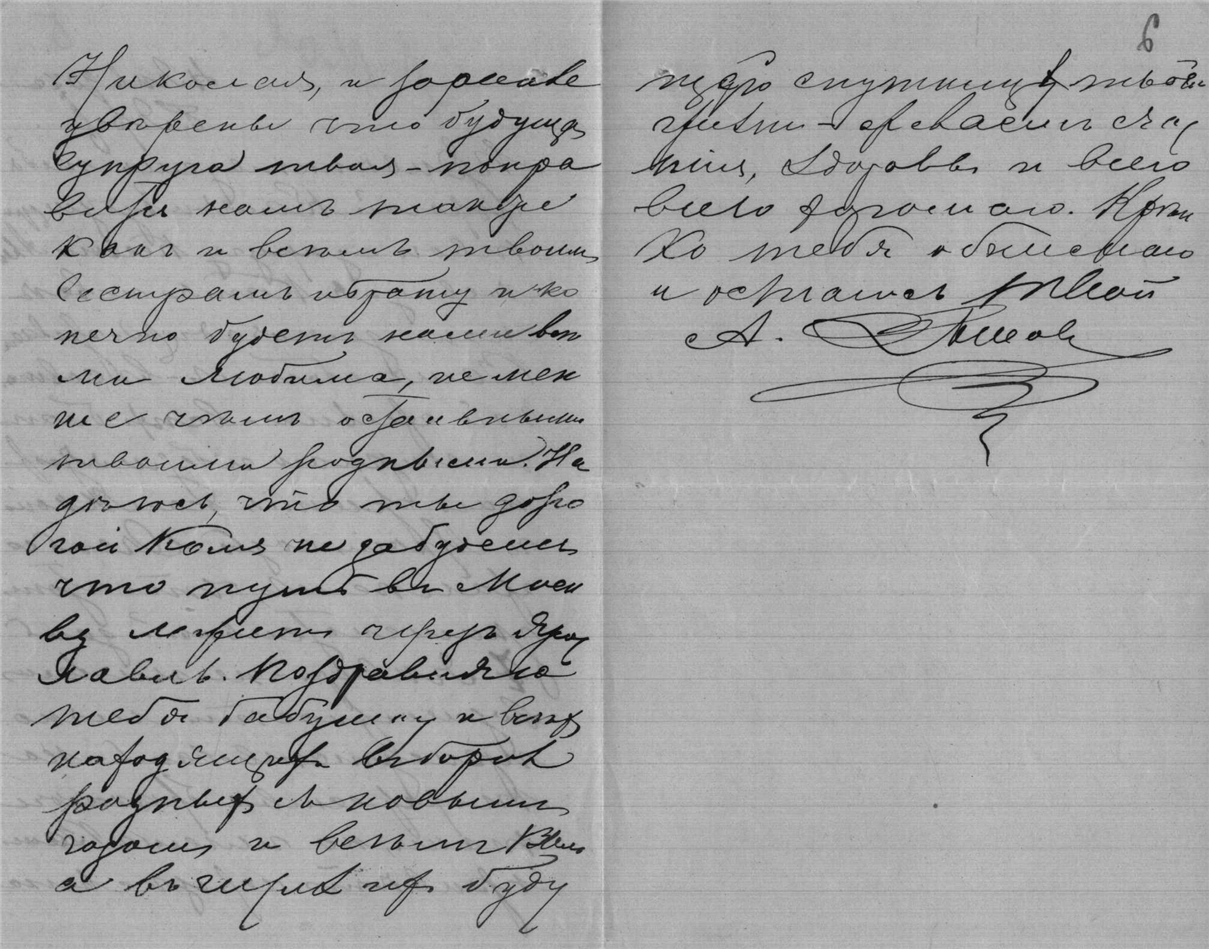 Николая, и заранее
уверены что будущая
супруга твоя - понра
вится намъ также
какъ и всѣмъ твоимъ
сестрамъ и брату и ко
нечно будетъ нами всѣ
ми любима, не мен
ше чѣмъ остальными
твоими родными. На
дѣюсь, что ты доро
гой Коля не забудешь
что путь въ Моск
ву лежитъ черезъ Яро
славль. Поздравляю
тебя бабушку и всѣхъ
находящихся въ сборѣ
родныхъ съ новымъ
годомъ и всѣмъ Вамъ
а въ числѣ ихъ буду
6
щую спутницу твоей
жизни - желаемъ сча
стія, здоровья и всего
всего хорошаго. Крѣп
ко тебя обнимаю
и остаюсь твой
А.